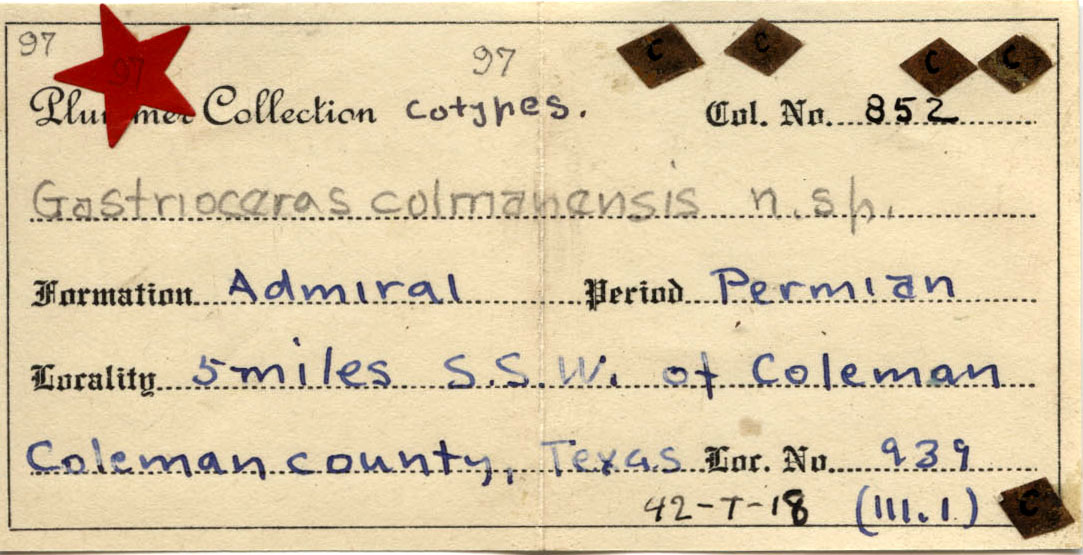 97 97 C C C C
97
Plummer Collection cotypes. Col. No. 852
Gastrioceras colmanensis n.sp.
Formation Admiral Period Permian
Locality 5 miles S.S.W. of Coleman
Coleman county, Texas Loc. No. 939
42-T-18 (III.1) C